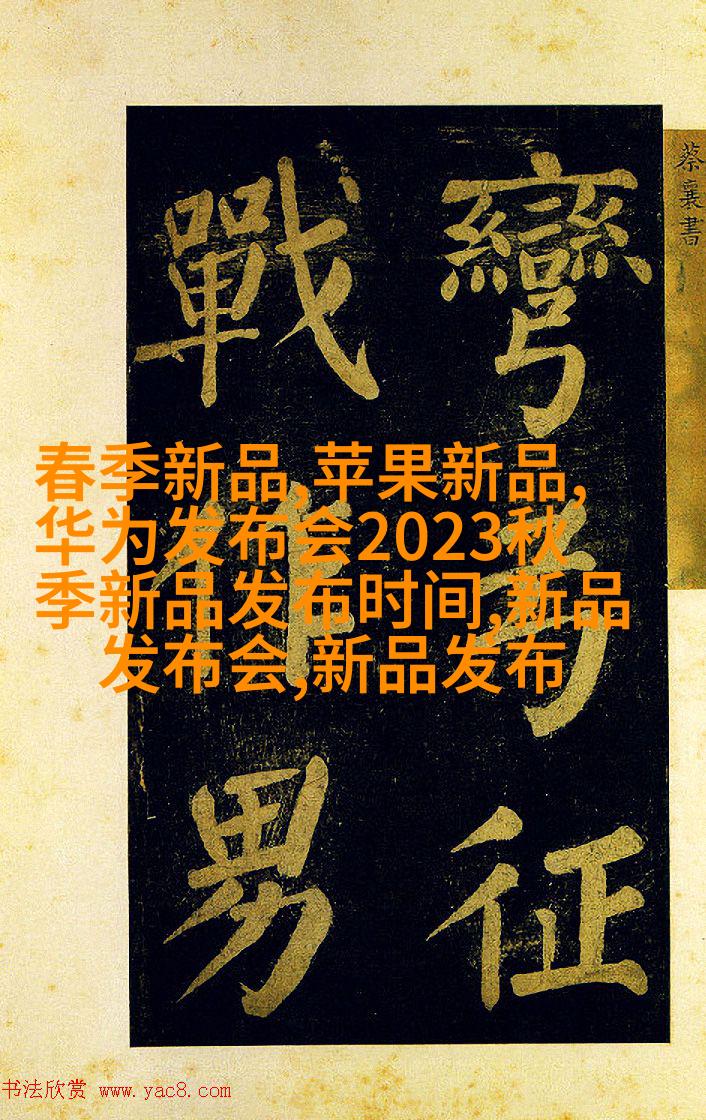 蔡襄書
彎弓征
戰作男
春季新品,苹果新品,
华为发布会2023秋
季新品发布时间,新品
发布会,新品发布
书法欣赏 www.yac8.com